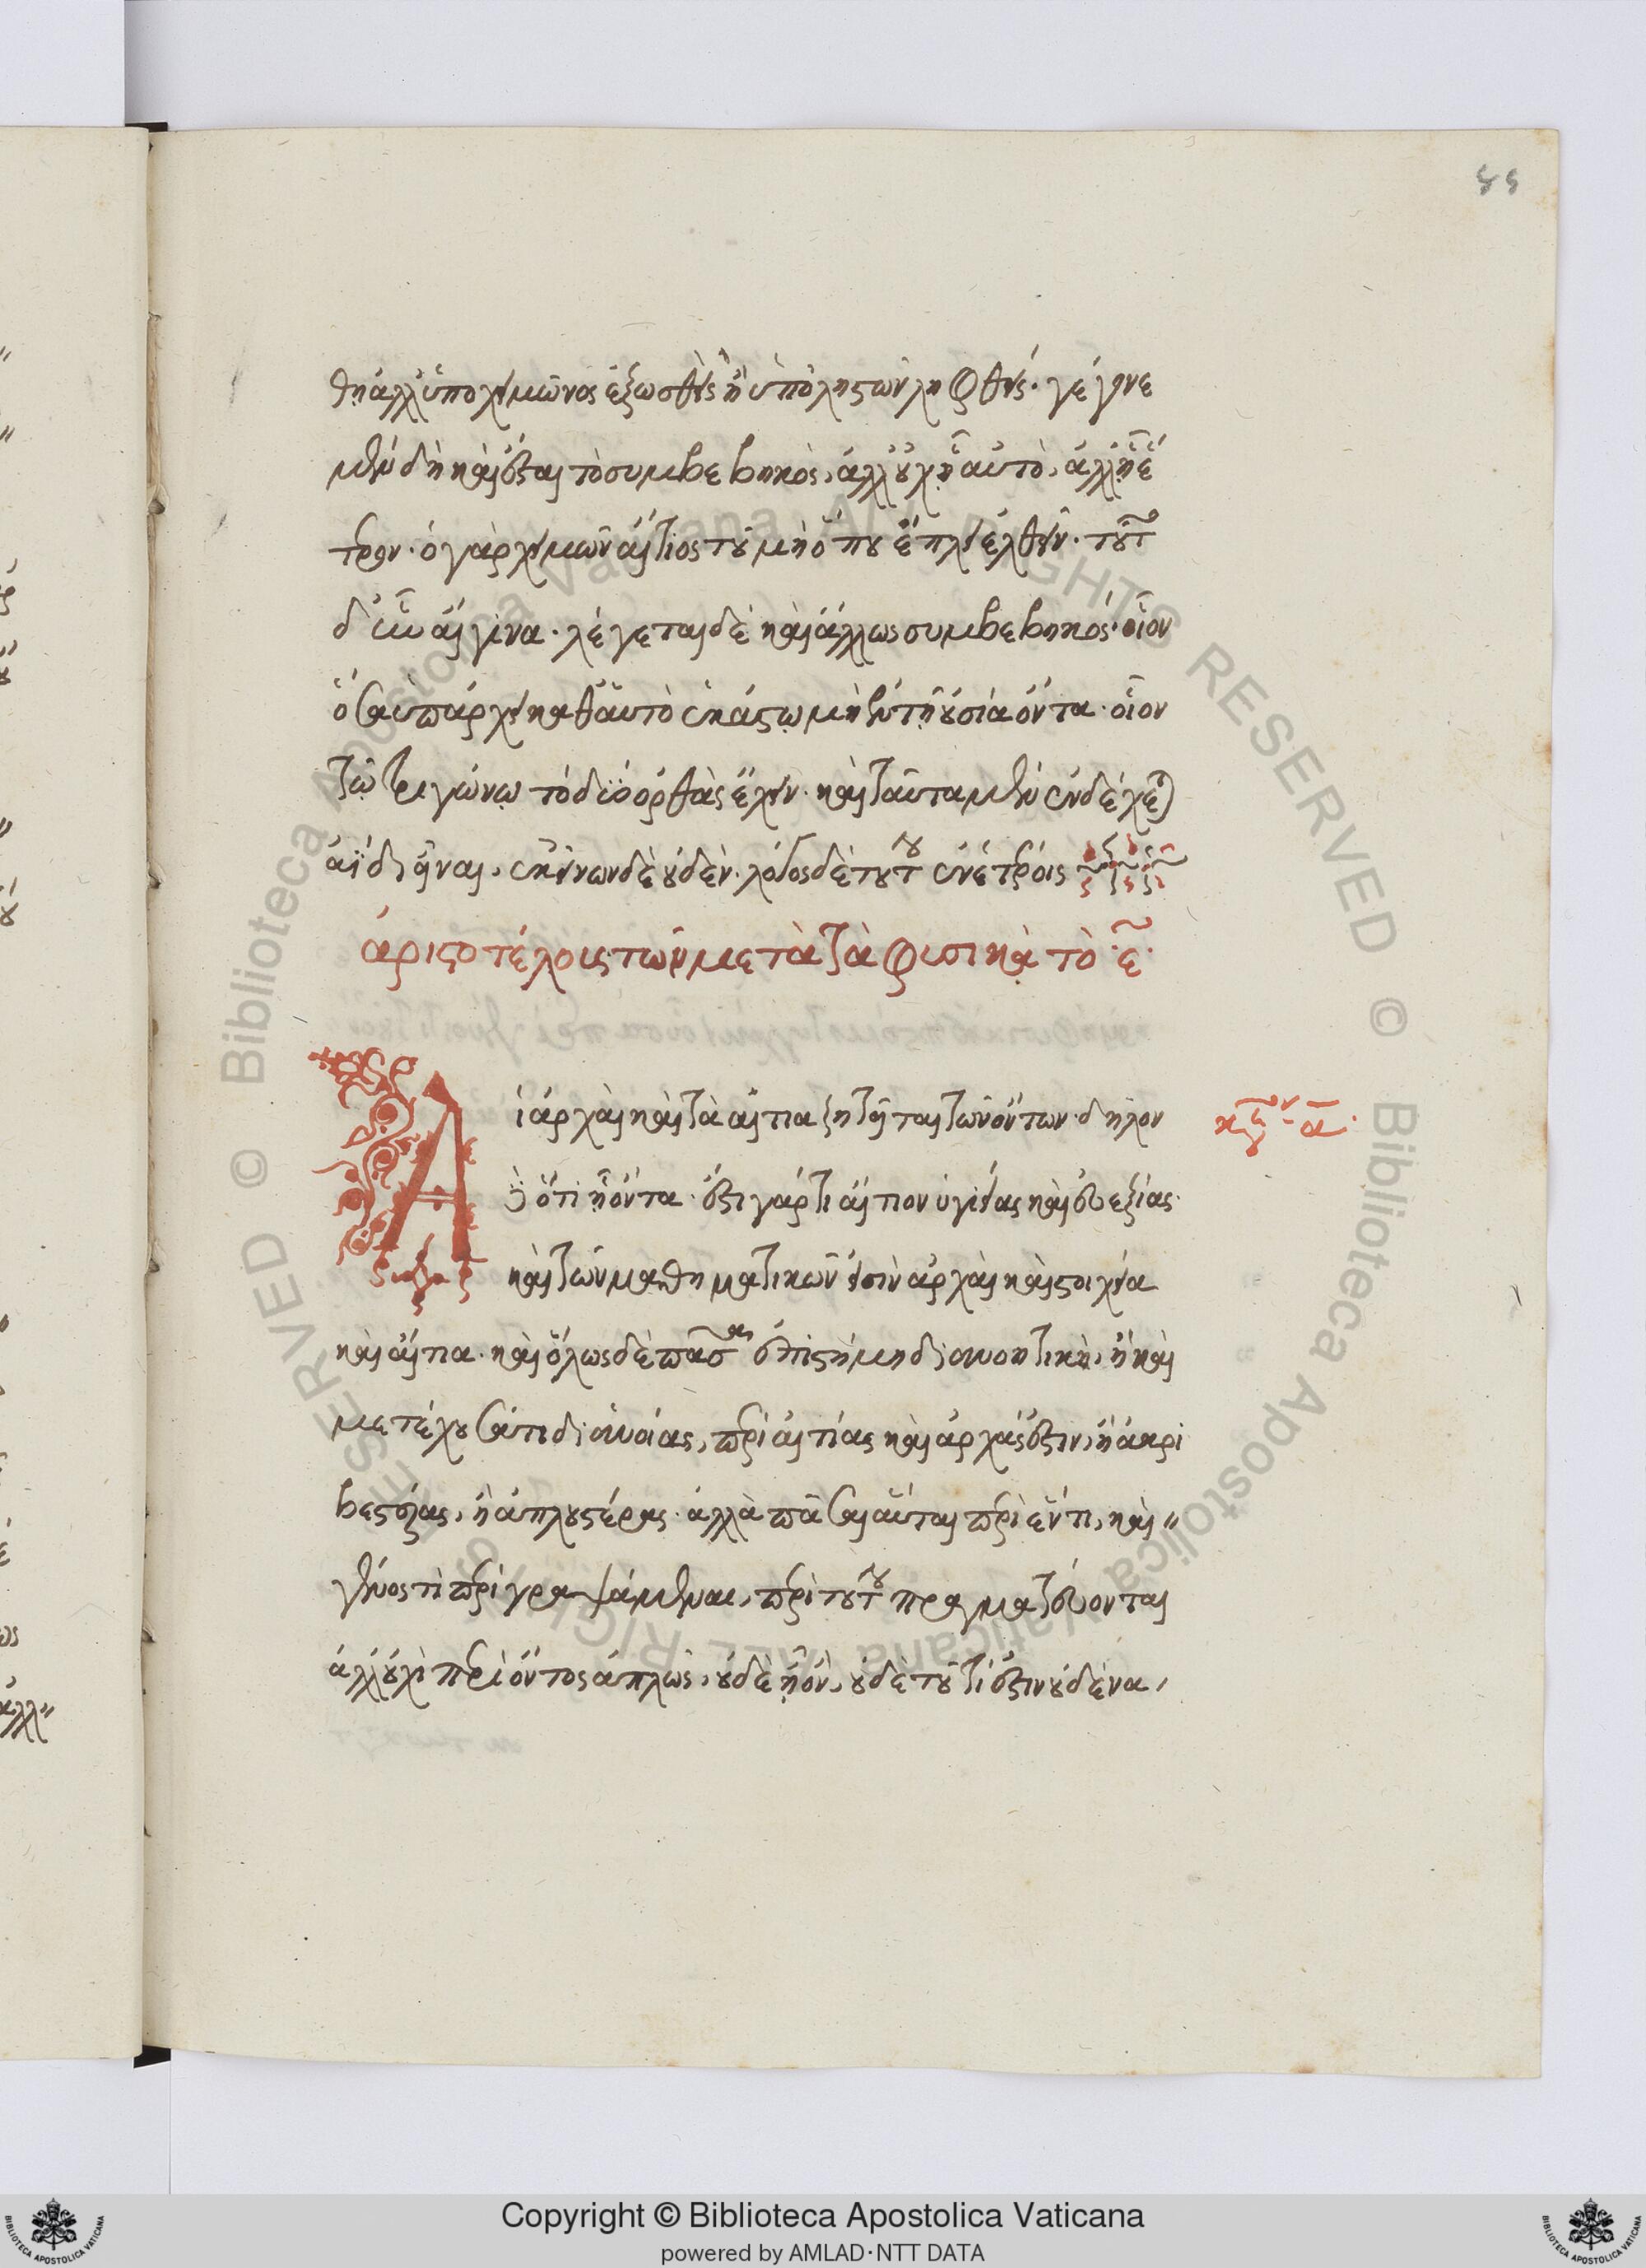 55
θη ἀλλ' ὑπὸ χειμῶνος ἐξωσθεὶς ἢ ὑπὸ ληστῶν ληφθείς· γέγονε
μὲν δὴ καὶ ἔσται τὸ συμβεβηκὸς, ἀλλ' οὐχ ᾗ αὐτὸ, ἀλλ' ᾗ ἕ
τερον· ὁ γὰρ χειμὼν αἴτιος τοῦ μὴ ὅπου ἔπλει ἐλθεῖν· τοῦτ
δ' ἦν αἴγινα· λέγεται δὲ καὶ ἄλλως συμβεβηκός· οἷον
ὅσα ὑπάρχει καθ' αὑτὸ ἑκάστῳ μὴ ἐν τῇ οὐσίᾳ ὄντα· οἷον
τῷ τριγώνῳ τὸ δύο ὀρθὰς ἔχειν· καὶ ταῦτα μὲν ἐνδέχεται
ἀΐδια εἶναι, ἐκείνων δὲ οὐδέν· λόγος δὲ τούτου ἐν ἑτέροις
ἀριστοτέλους τῶν μετὰ τὰ φυσικὰ τὸ ε·
Αἱ ἀρχαὶ καὶ τὰ αἴτια ζητεῖται τῶν ὄντων· δῆλον
δὲ ὅτι ᾗ ὄντα· ἔστι γάρ τι αἴτιον ὑγιείας καὶ εὐεξίας·
καὶ τῶν μαθηματικῶν εἰσὶν ἀρχαὶ καὶ στοιχεῖα
καὶ αἴτια· καὶ ὅλως δὲ πᾶσα ἐπιστήμη διανοητικὴ, ἢ καὶ
μετέχουσά τι διανοίας, περὶ αἰτίας καὶ ἀρχάς ἐστιν, ἢ ἀκρι
βεστέρας, ἢ ἁπλουστέρας· ἀλλὰ πᾶσαι αὗται περὶ ἕν τι, καὶ
γένος τι περιγραψάμεναι, περὶ τούτου πραγματεύονται
ἀλλ' οὐχὶ περὶ ὄντος ἁπλῶς, οὐδὲ ᾗ ὄν, οὐδὲ τοῦ τί ἐστιν οὐδένα,
Copyright © Biblioteca Apostolica Vaticana
powered by AMLAD·NTT DATA